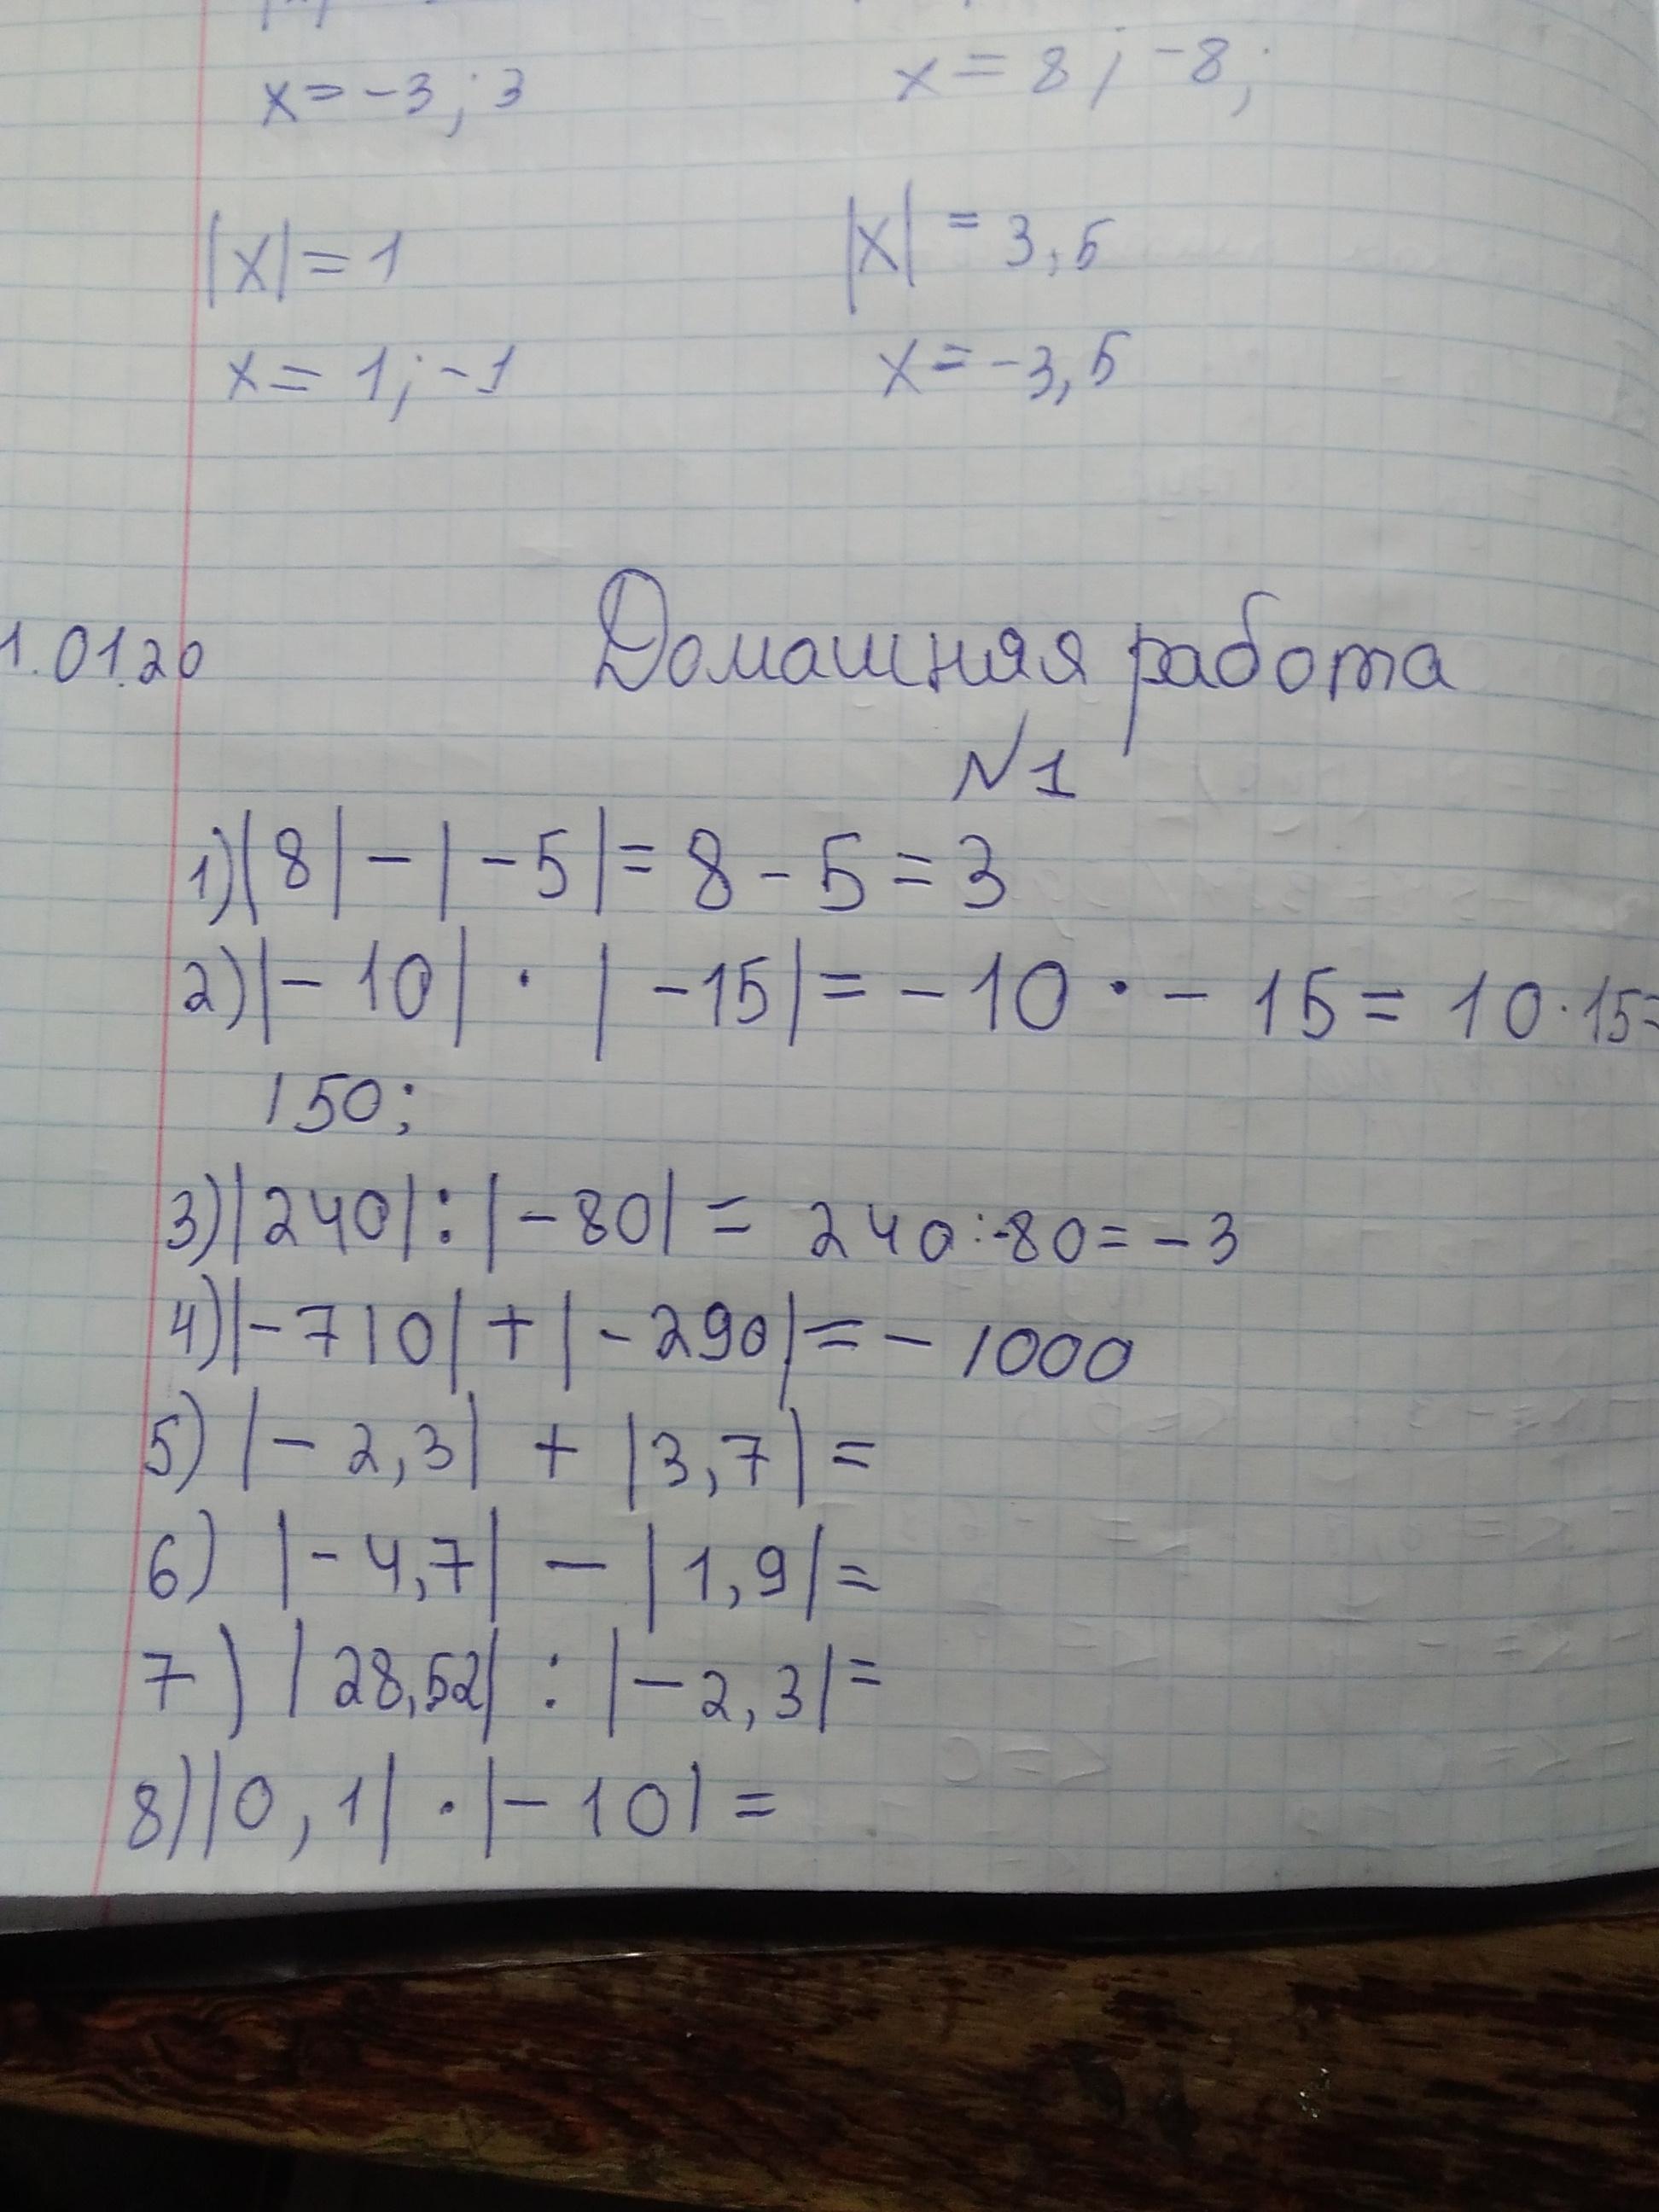 x = -3; 3
x = 8; -8;
|x| = 1
|x| = 3,5
x = 1; -1
x = -3,5
1.01.20
Домашняя работа
N1
1) |8| - |-5| = 8 - 5 = 3
2) |-10| · |-15| = -10 · -15 = 10 · 15 =
150;
3) |240| : |-80| = 240 : -80 = -3
4) |-710| + |-290| = -1000
5) |-2,3| + |3,7| =
6) |-4,7| - |1,9| =
7) |28,52| : |-2,3| =
8) |0,1| · |-10| =